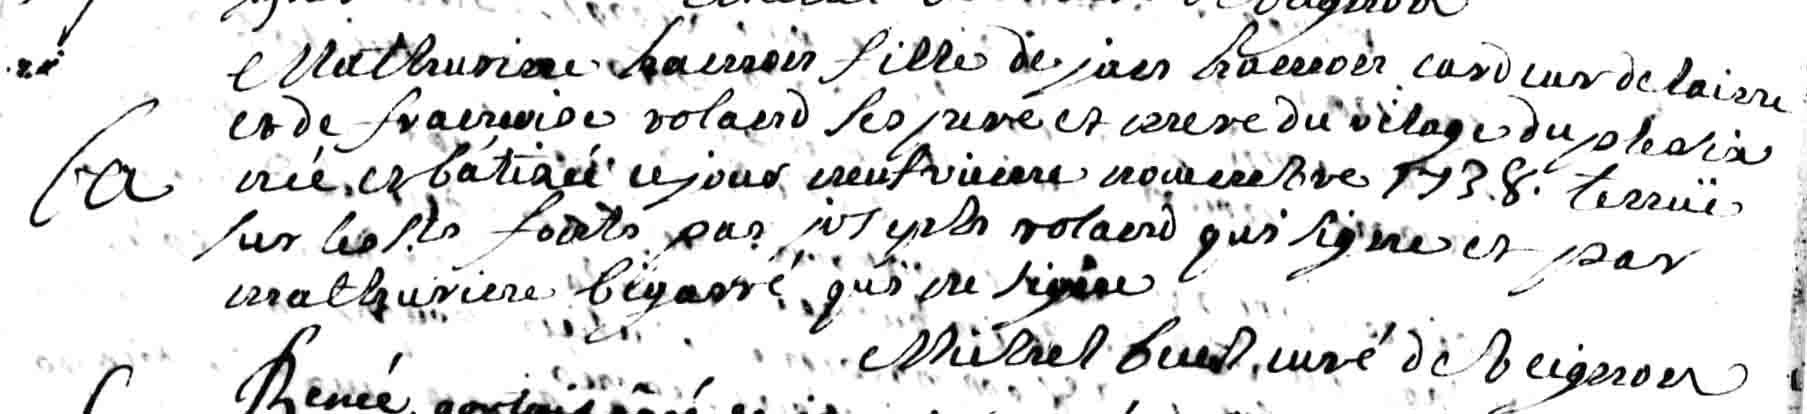 Mathurine hamon fille de jan hamon cardeur de laine
et de francoise roland ses pere et mere du vilage du plesix
née et bâtisée ce jour neufvieme novembre 1738. tennüe
sur les sts fonts par joseph roland qui signe et par
mathurine bigarré qui ne signe
Michel curé de beignon
Renée